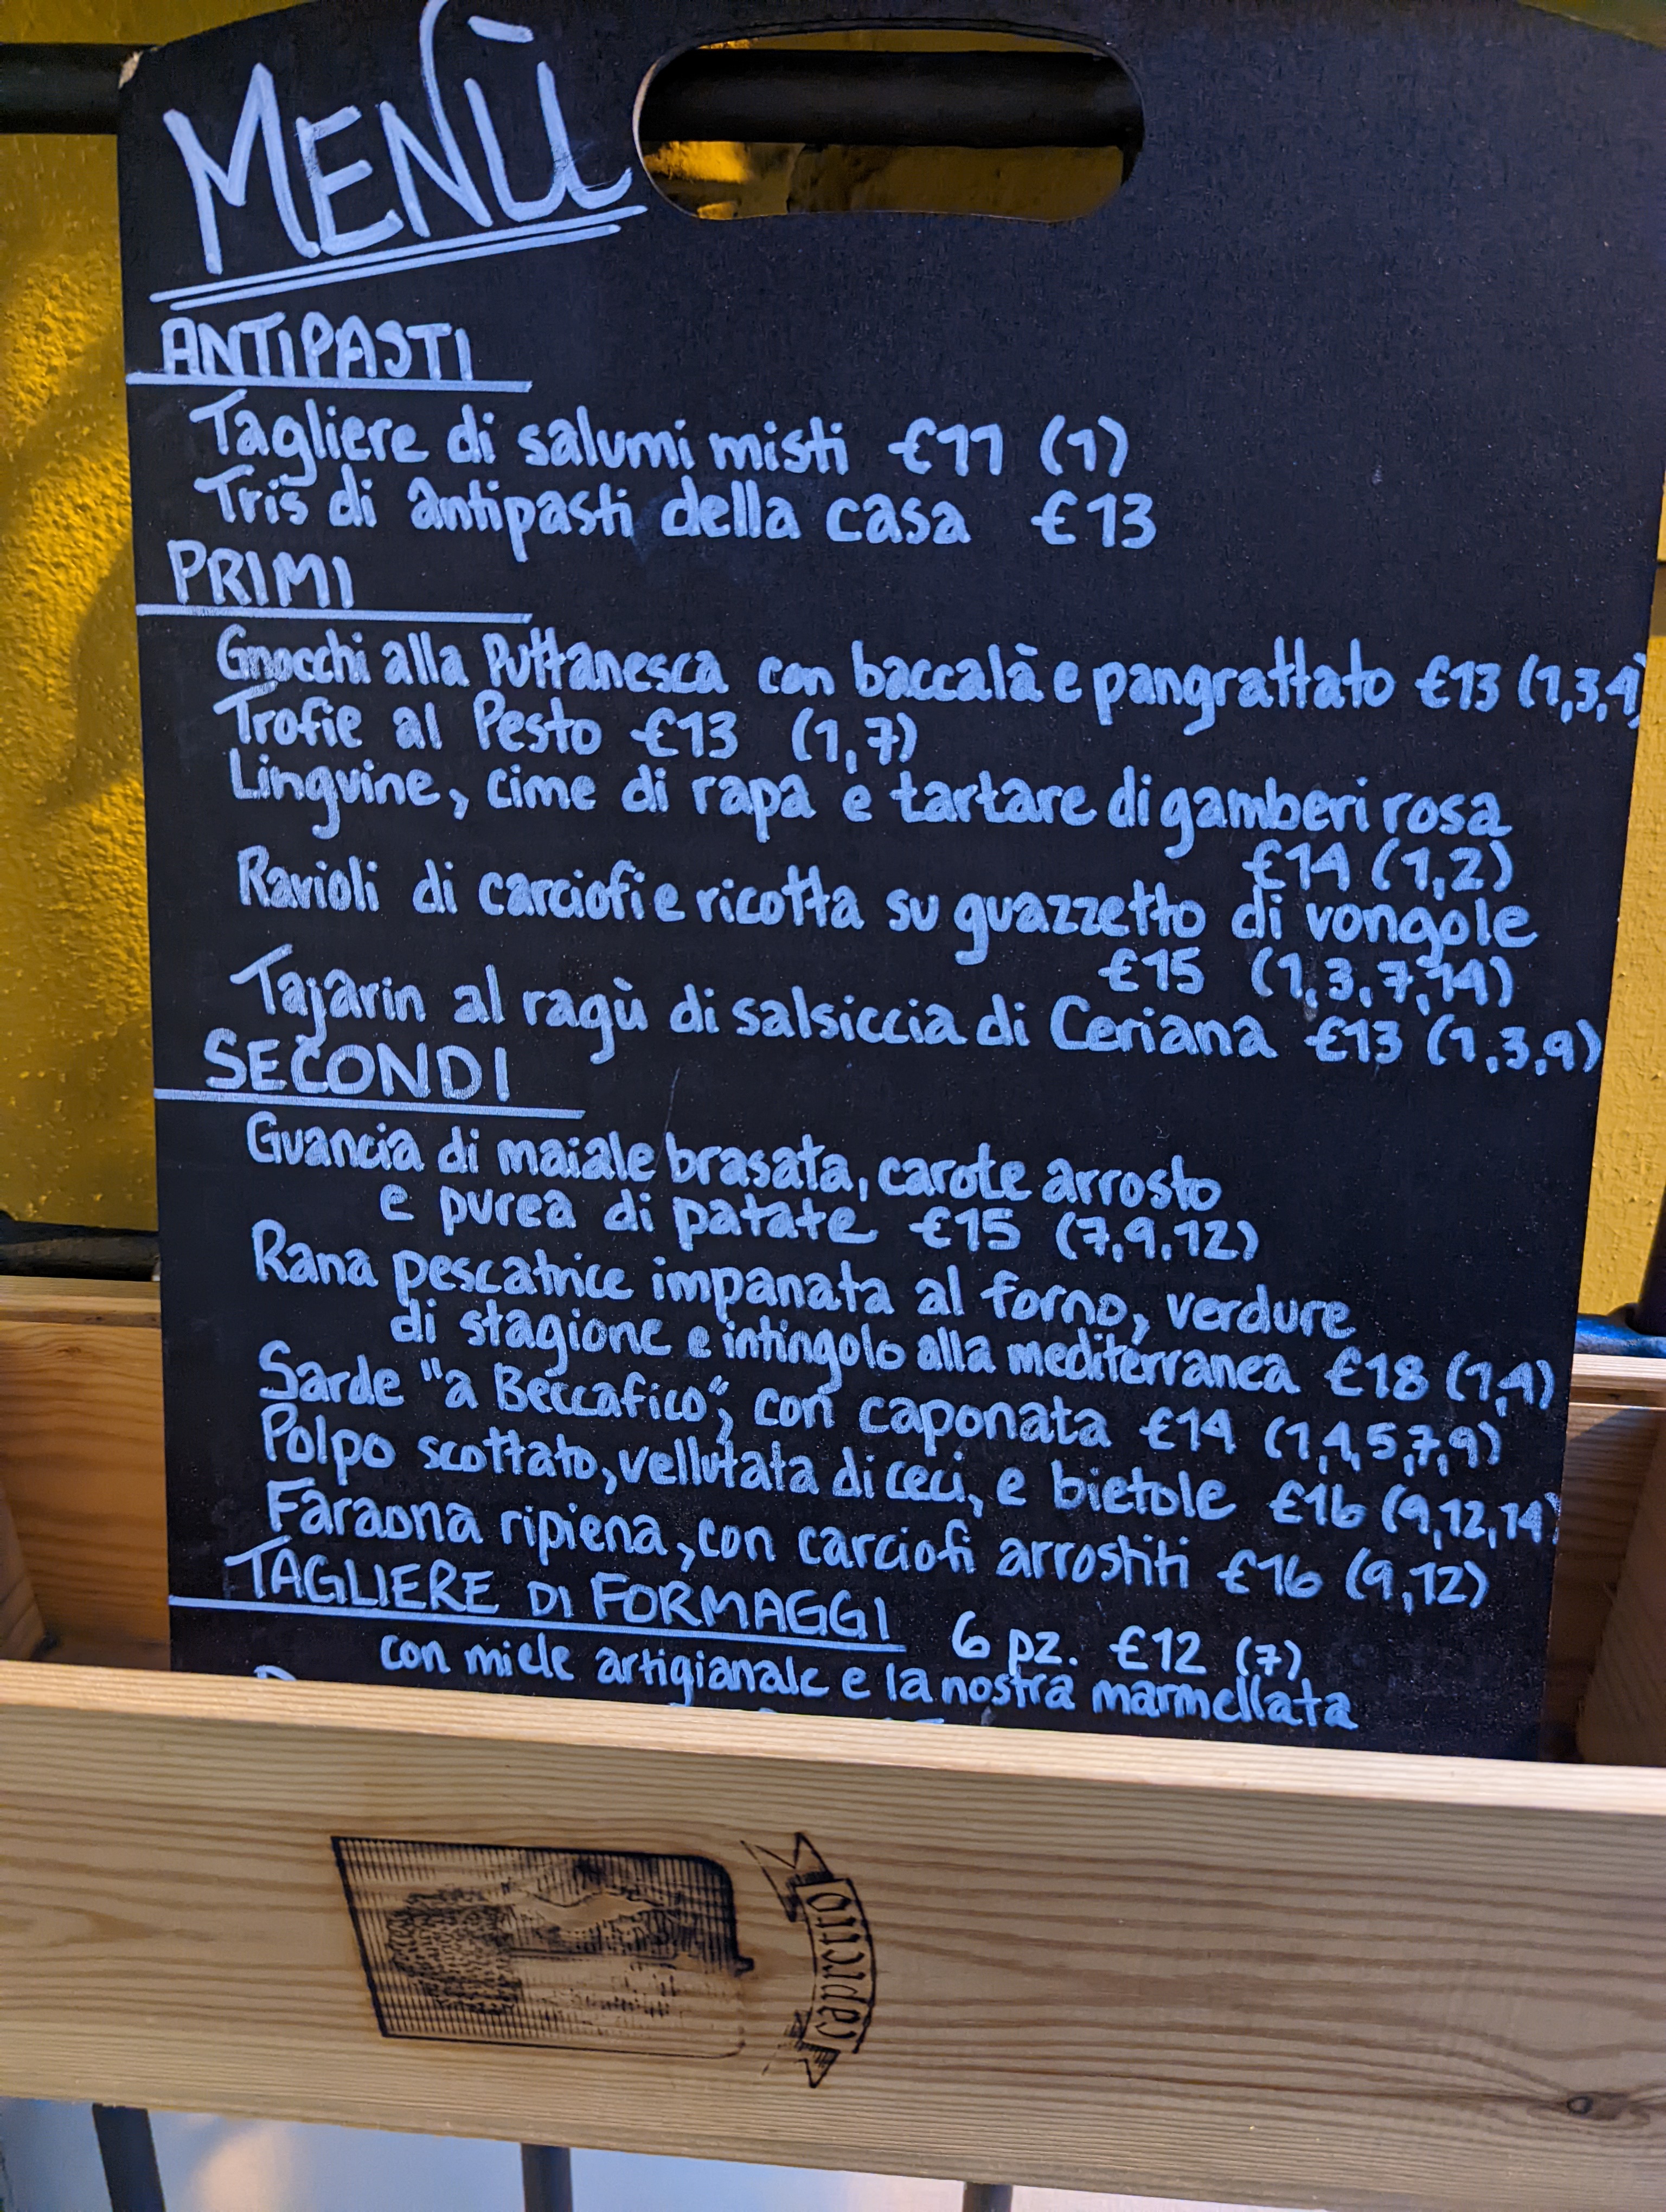 MENÙ
ANTIPASTI
Tagliere di salumi misti €11 (1)
Tris di antipasti della casa €13
PRIMI
Gnocchi alla Puttanesca con baccalà e pangrattato €13 (1,3,4)
Trofie al Pesto €13 (1,7)
Linguine, cime di rapa e tartare di gamberi rosa
€14 (1,2)
Ravioli di carciofi e ricotta su guazzetto di vongole
€15 (1,3,7,14)
Tajarin al ragù di salsiccia di Ceriana €13 (1,3,9)
SECONDI
Guancia di maiale brasata, carote arrosto
e purea di patate €15 (7,9,12)
Rana pescatrice impanata al forno, verdure
di stagione e intingolo alla mediterranea €18 (1,4)
Sarde "a Beccafico", con caponata €14 (1,4,5,7,9)
Polpo scottato, vellutata di ceci, e bietole €16 (9,12,14)
Faraona ripiena, con carciofi arrostiti €16 (9,12)
TAGLIERE DI FORMAGGI 6 pz. €12 (7)
con miele artigianale e la nostra marmellata